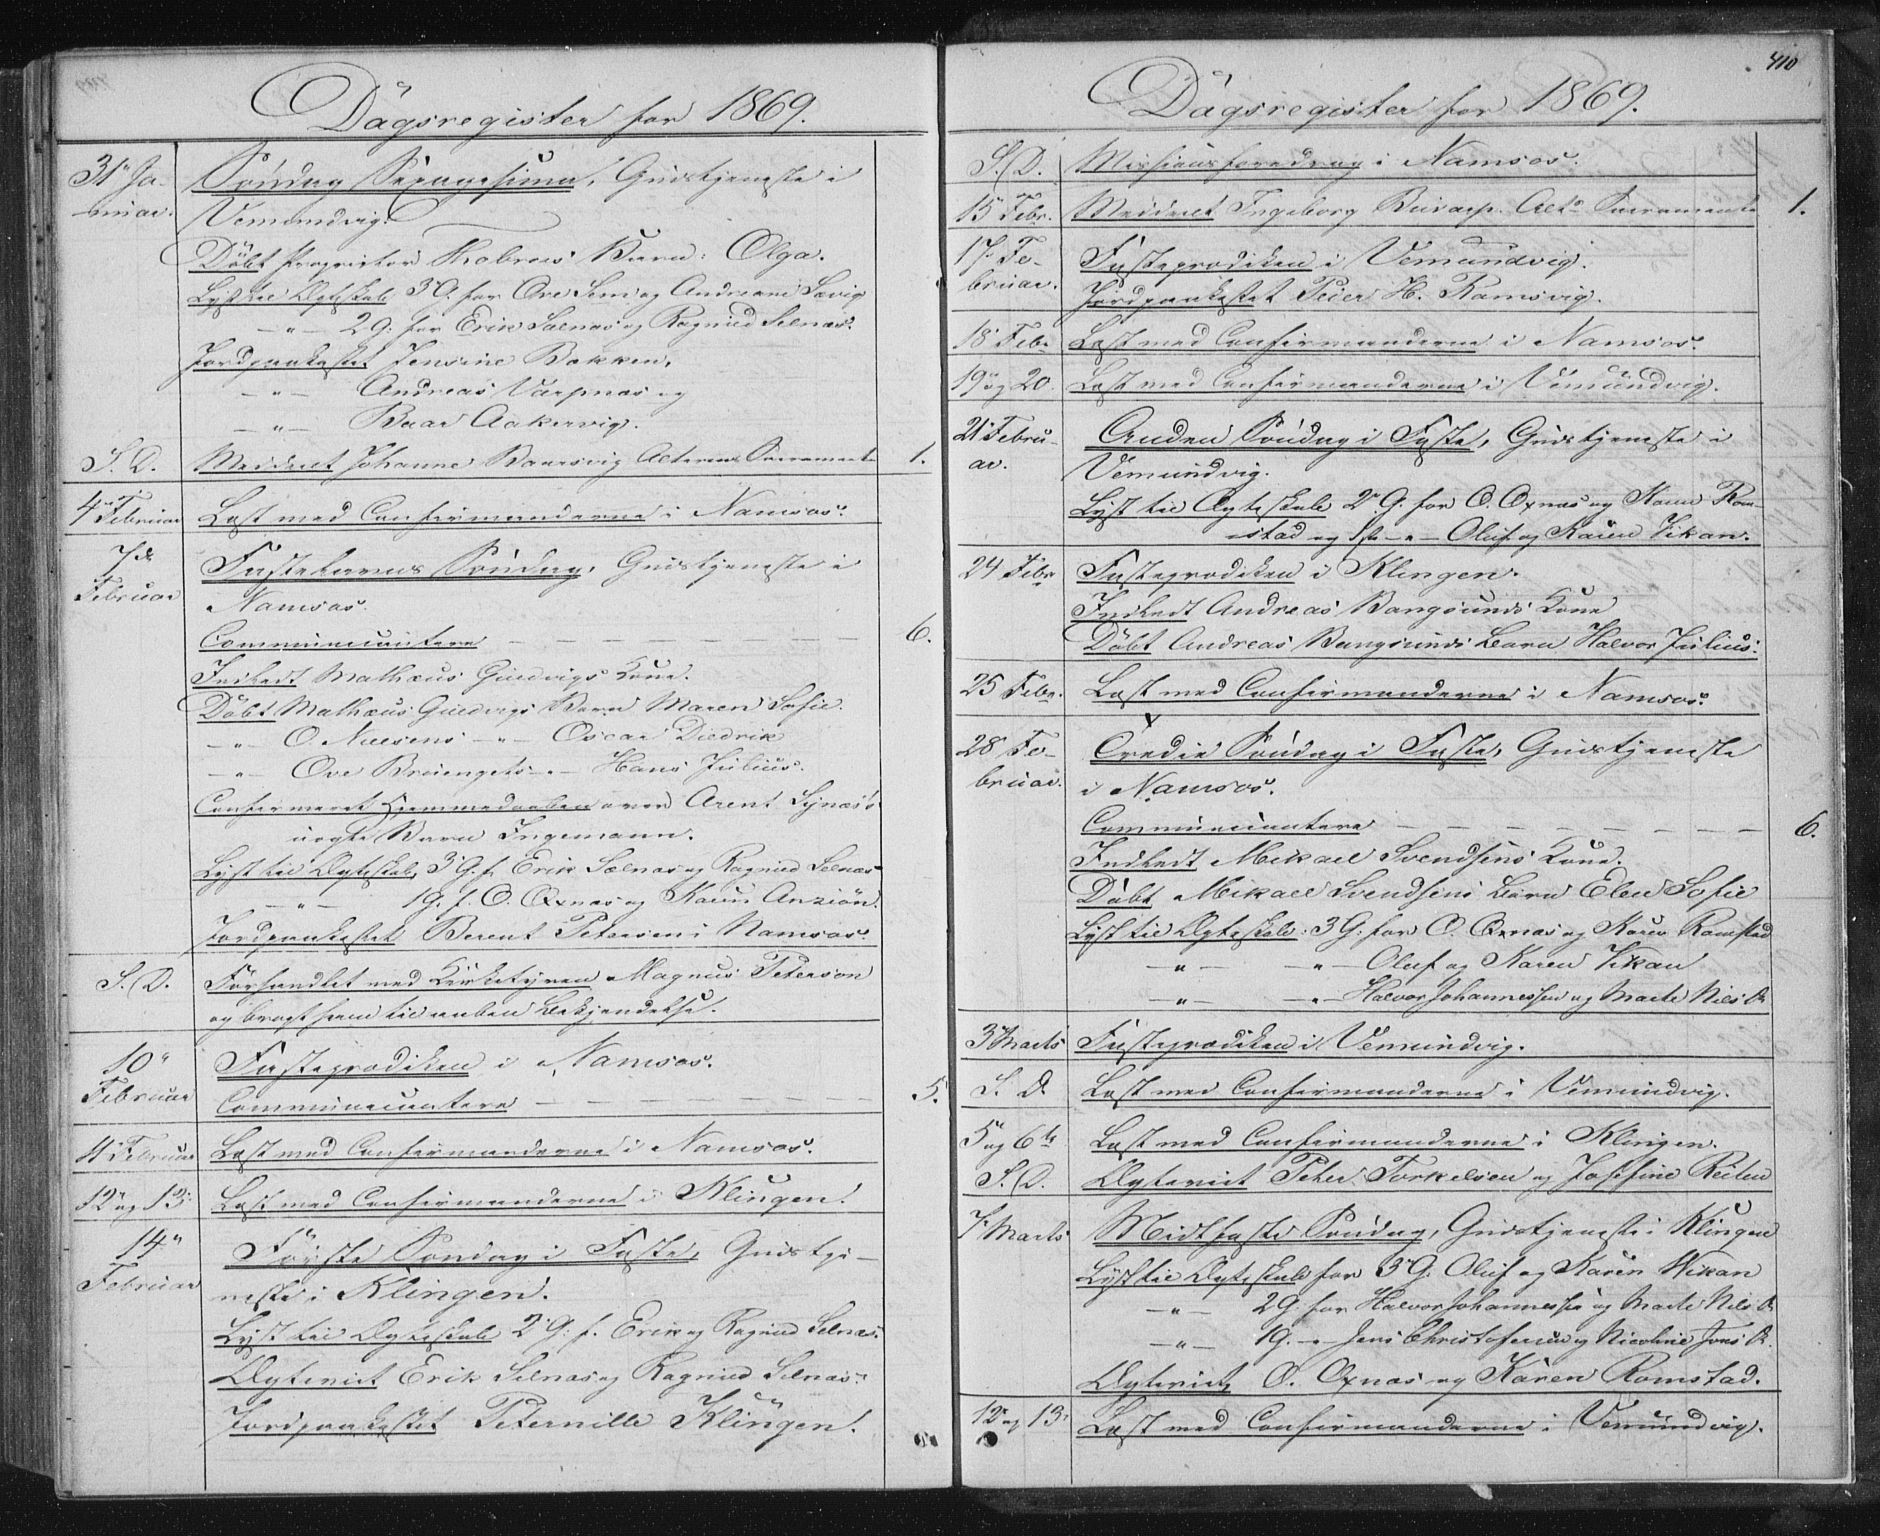 Dagsregister for 1869.
31' Ja-
nuar.
Söndag Sexagesima, Gudstjeneste i
Vemundvig.
Döbt Proprietær Barn: Olga.
Lyst til Ægteskab 3' G. for Ove Sem og Andreane Sævig
— " — 2 G. for Erik Selnæs og Ragnild Selnæs.
Jordpaakastet Jensine Bakken,
— " — Andreas Varpnæs og
— " — Baar Aakervig.
S. D. Meddeelt Johanne Baarsvig Alterens Sacramente 1.
4' Februar Læst med Confirmanderne i Namsos.
7de
Februar
Fastelavns Söndag, Gudstjeneste i
Namsos.
Communicantere — — — 6.
Indledt Mathæus Kone.
Döbt Mathæus Barn Maren Sofie.
— " — O. Nielsens — " — Oscar Diedrik
— " — Ove — " — Hans Julius.
Confirmeret Hjemmedaaben over Arent
uægte Barn Ingemann.
Lyst til Ægteskab, 3' G. f. Erik Selnæs og Ragnild Selnæs
— " — 1 G. f. O. Oxnæs og Karen
Jordpaakastet Berent Petersen i Namsos.
S. D. Forhandlet med Kirketyven Magnus Peterson
og bragt ham til aaben Bekjendelse.
10'
Februar
Fasteprædiken i Namsos.
Communicantere — — — 5.
11' Februar Læst med Confirmanderne i Namsos.
12' og 13' Læst med Confirmanderne i Klingen.
14'
Februar
Förste Söndag i Faste, Gudstje-
neste i Klingen.
Lyst til Ægteskab 2' G. f. Erik og Ragnild Selnæs.
Ægteviet Erik Selnæs og Ragnild Selnæs.
Jordpaakastet Peternille Klingen.
410
Dagsregister for 1869.
S. D. Missionsforedrag i Namsos.
15' Febr. Meddeelt Ingeborg Alt. Sacramente 1.
17' Fe-
bruar.
Fasteprædiken i Vemundvig.
Jordpaakastet Peter H. Ramsvig.
18' Febr Læst med Confirmanderne i Namsos.
19' og 20. Læst med Confirmanderne i Vemundvig.
21' Febru-
ar.
Anden Söndag i Faste, Gudstjeneste i
Vemundvig.
Lyst til Ægteskab 2' G. for O. Oxnæs og Karen Rom-
stad og 1ste — " — Oluf og Karen Vikan.
24 Febr Fasteprædiken i Klingen.
Indledt Andreas Bangsunds Kone
Döbt Andreas Bangsunds Barn Halvor Julius.
25 Febr. Læst med Confirmanderne i Namsos.
28' Fe-
bruar.
Tredie Söndag i Faste, Gudstjeneste
i Namsos.
Communicantere — — — 6.
Indledt Mikael Svendsens Kone.
Döbt Mikael Svendsens Barn Ellen Sofie
Lyst til Ægteskab: 3 G. for O. Oxnæs og Karen Romstad
— " — — " — Oluf og Karen Vikan
— " — — " — Halvor Johannessen og Marte Nils D.
3' Marts Fasteprædiken i Vemundvig.
S. D. Læst med Confirmanderne i Vemundvig.
5' og 6te Læst med Confirmanderne i Klingen.
S. D. Ægteviet Peter Torkelsen og Josefine Reiten
7' Marts Midtfaste Söndag, Gudstjeneste i Klingen
Lyst til Ægteskab for 3' G. Oluf og Karen Wikan
— " — 2 G. for Halvor Johannessen og Marte Nils D.
— " — 1 G. — " — Jens Christofersen og Nicoline Jons D.
Ægteviet, O. Oxnæs og Karen Romstad.
12' og 13' Læst med Confirmanderne i Vemundvig.